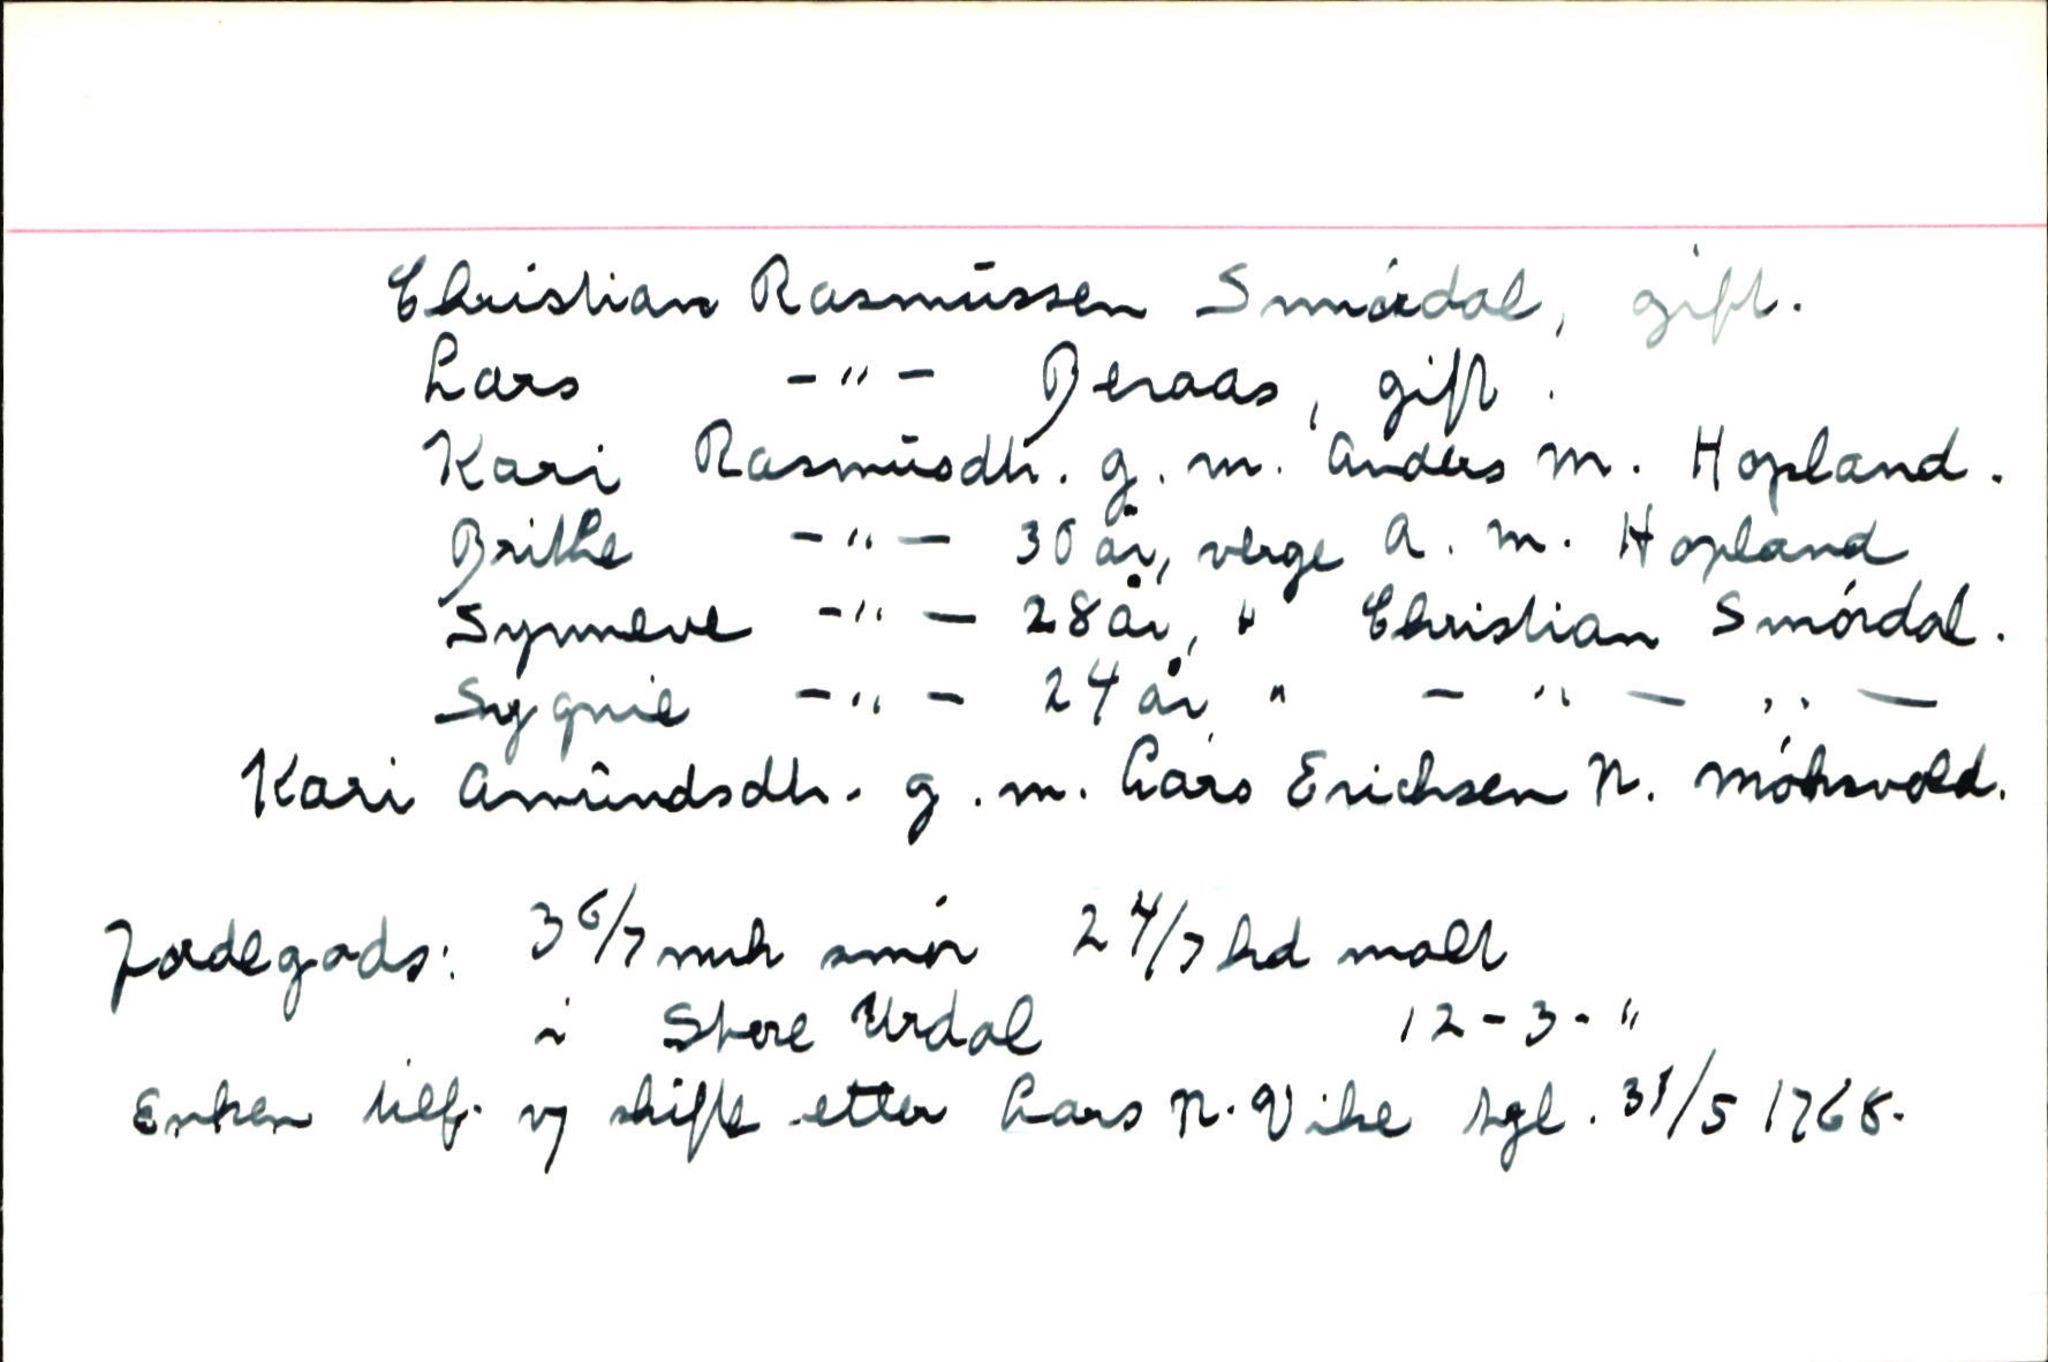 Christian Rasmussen Smørdal, gift.
Lars -"- Beraas, gift.
Kari Rasmusdtr. g. m. Anders M. Hopland.
Brithe -"- 30 år, verge A. M. Hopland
Synneve -"- 28 år, " Christian Smørdal.
Sygnie -"- 24 år " -"-"-
Kari Amundsdtr. g. m. Lars Erichsen N. Møhsvold.
Jordegods: 3 6/7 mrk smør 2 4/7 hd malt
i Store Urdal 12-3-"
Enken tilf. v/ skifte etter Lars N. Vike tgl. 31/5 1768.